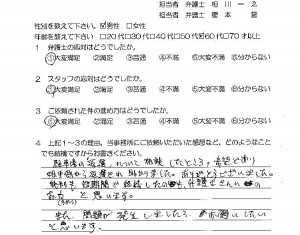 担当者 弁護士 相川一ゑ
担当者 弁護士 榎本 誉
性別を教えて下さい。☑男性 □女性
年齢を教えて下さい □20代□30代□40代□50代☑60代□70才以上
1 弁護士の応対はどうでしたか。
①大変満足 ②満足 ③普通 ④不満 ⑤大変不満 ⑥分からない
2 スタッフの応対はどうでしたか。
①大変満足 ②満足 ③普通 ④不満 ⑤大変不満 ⑥分からない
3 ご依頼された件の進め方はどうでしたか。
①大変満足 ②満足 ③普通 ④不満 ⑤大変不満 ⑥分からない
4 上記1~3の理由、当事務所にご依頼いただいた感想など、どのようなことでも結構ですからお書きください。
の返還について依頼したところ、希望通り
返還され助かりました。ありがとうございました。
短期間で終結したのも、弁護士さんの
と思います。
また、問題が発生しましたら、お願いしたい
と思います。